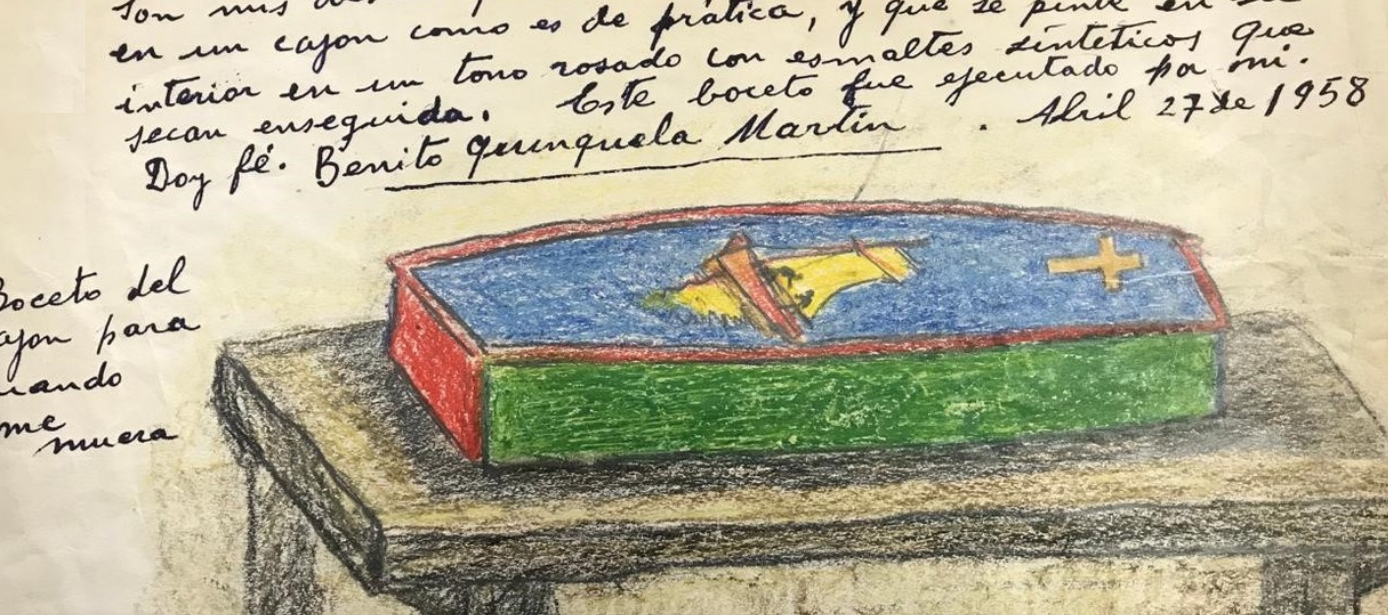 Son mis
en un cajon como es de prática, y que se pinte en su
interior en un tono rosado con esmaltes sintéticos que
secan enseguida. Este boceto fue ejecutado por mi.
Doy fé. Benito Quinquela Martín . Abril 27 de 1958
Boceto del
cajon para
cuando
me
muera